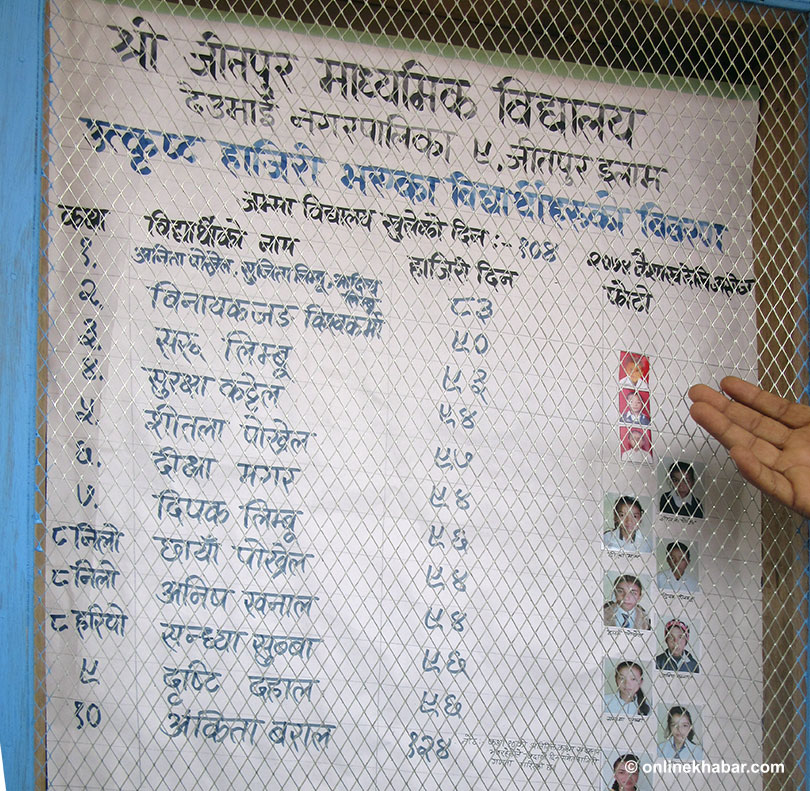 श्री जीतपुर माध्यमिक विद्यालय
देउमाई नगरपालिका ९, जीतपुर इलाम
उत्कृष्ट हाजिरी भएका विद्यार्थीहरुको विवरण
जम्मा विद्यालय खुलेको दिन :- १०४
कक्षा विद्यार्थीको नाम हाजिरी दिन २०७४ वैशाख देखि फोटो
१. अनिता पोख्रेल, सुजिता लिम्बू, ८३
२. विनायकजङ विश्वकर्मा ९०
३. सरू लिम्बू ९३
४. सुरक्षा कट्टेल ९४
५. शीतला पोख्रेल ९७
६. दीक्षा मगर ९४
७. दिपक लिम्बू ९६
८ निलो छायाँ पोख्रेल ९४
८ निलो अनिष खनाल ९४
८ हरियो सन्ध्या सुब्बा ९६
९ दृष्टि दहाल ९६
१० अंकिता बराल १२४
© onlinekhabar.com